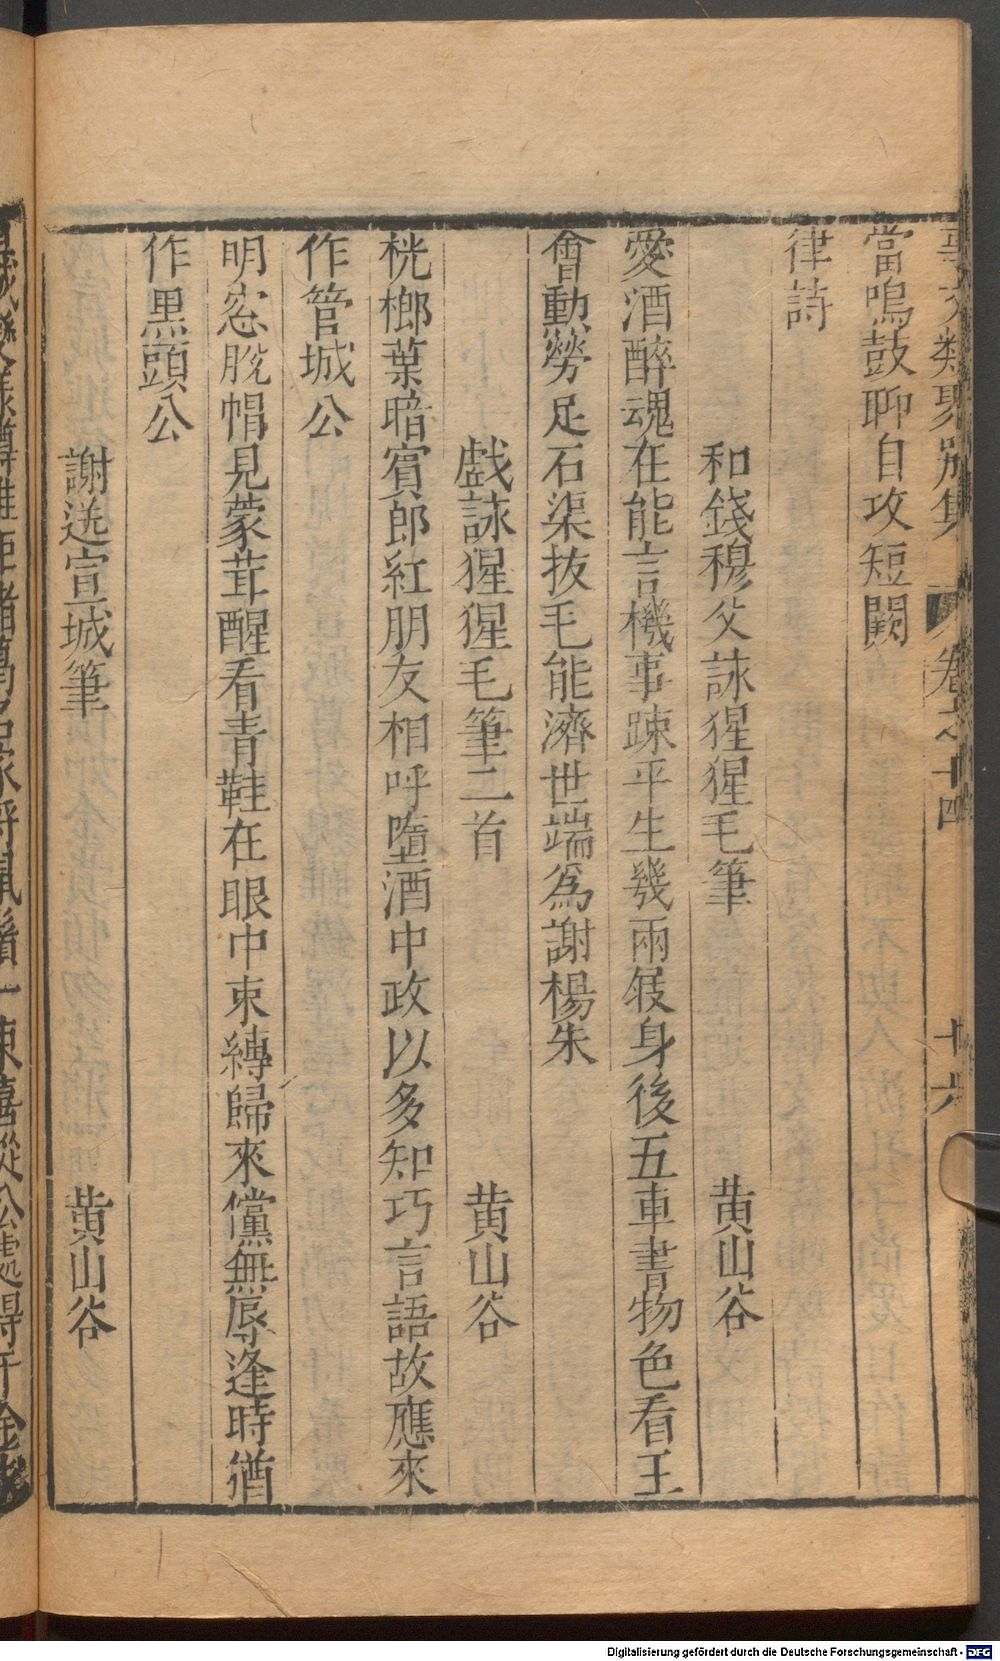 事文類聚別集 卷之十四 十六
當鳴鼓聊自攻短闕
律詩
和錢穆父詠猩猩毛筆 黄山谷
愛酒醉魂在能言機事踈平生幾兩屐身後五車書物色看王
會勳勞足石渠拔毛能濟世端爲謝楊朱
戲詠猩猩毛筆二首 黄山谷
桄榔葉暗賓郎紅朋友相呼墮酒中政以多知巧言語故應來
作管城公
明窓脫帽見蒙茸醒看青鞋在眼中束縛歸來儻無辱逢時猶
作黒頭公
謝送宣城筆 黄山谷
Digitalisierung gefördert durch die Deutsche Forschungsgemeinschaft - DFG